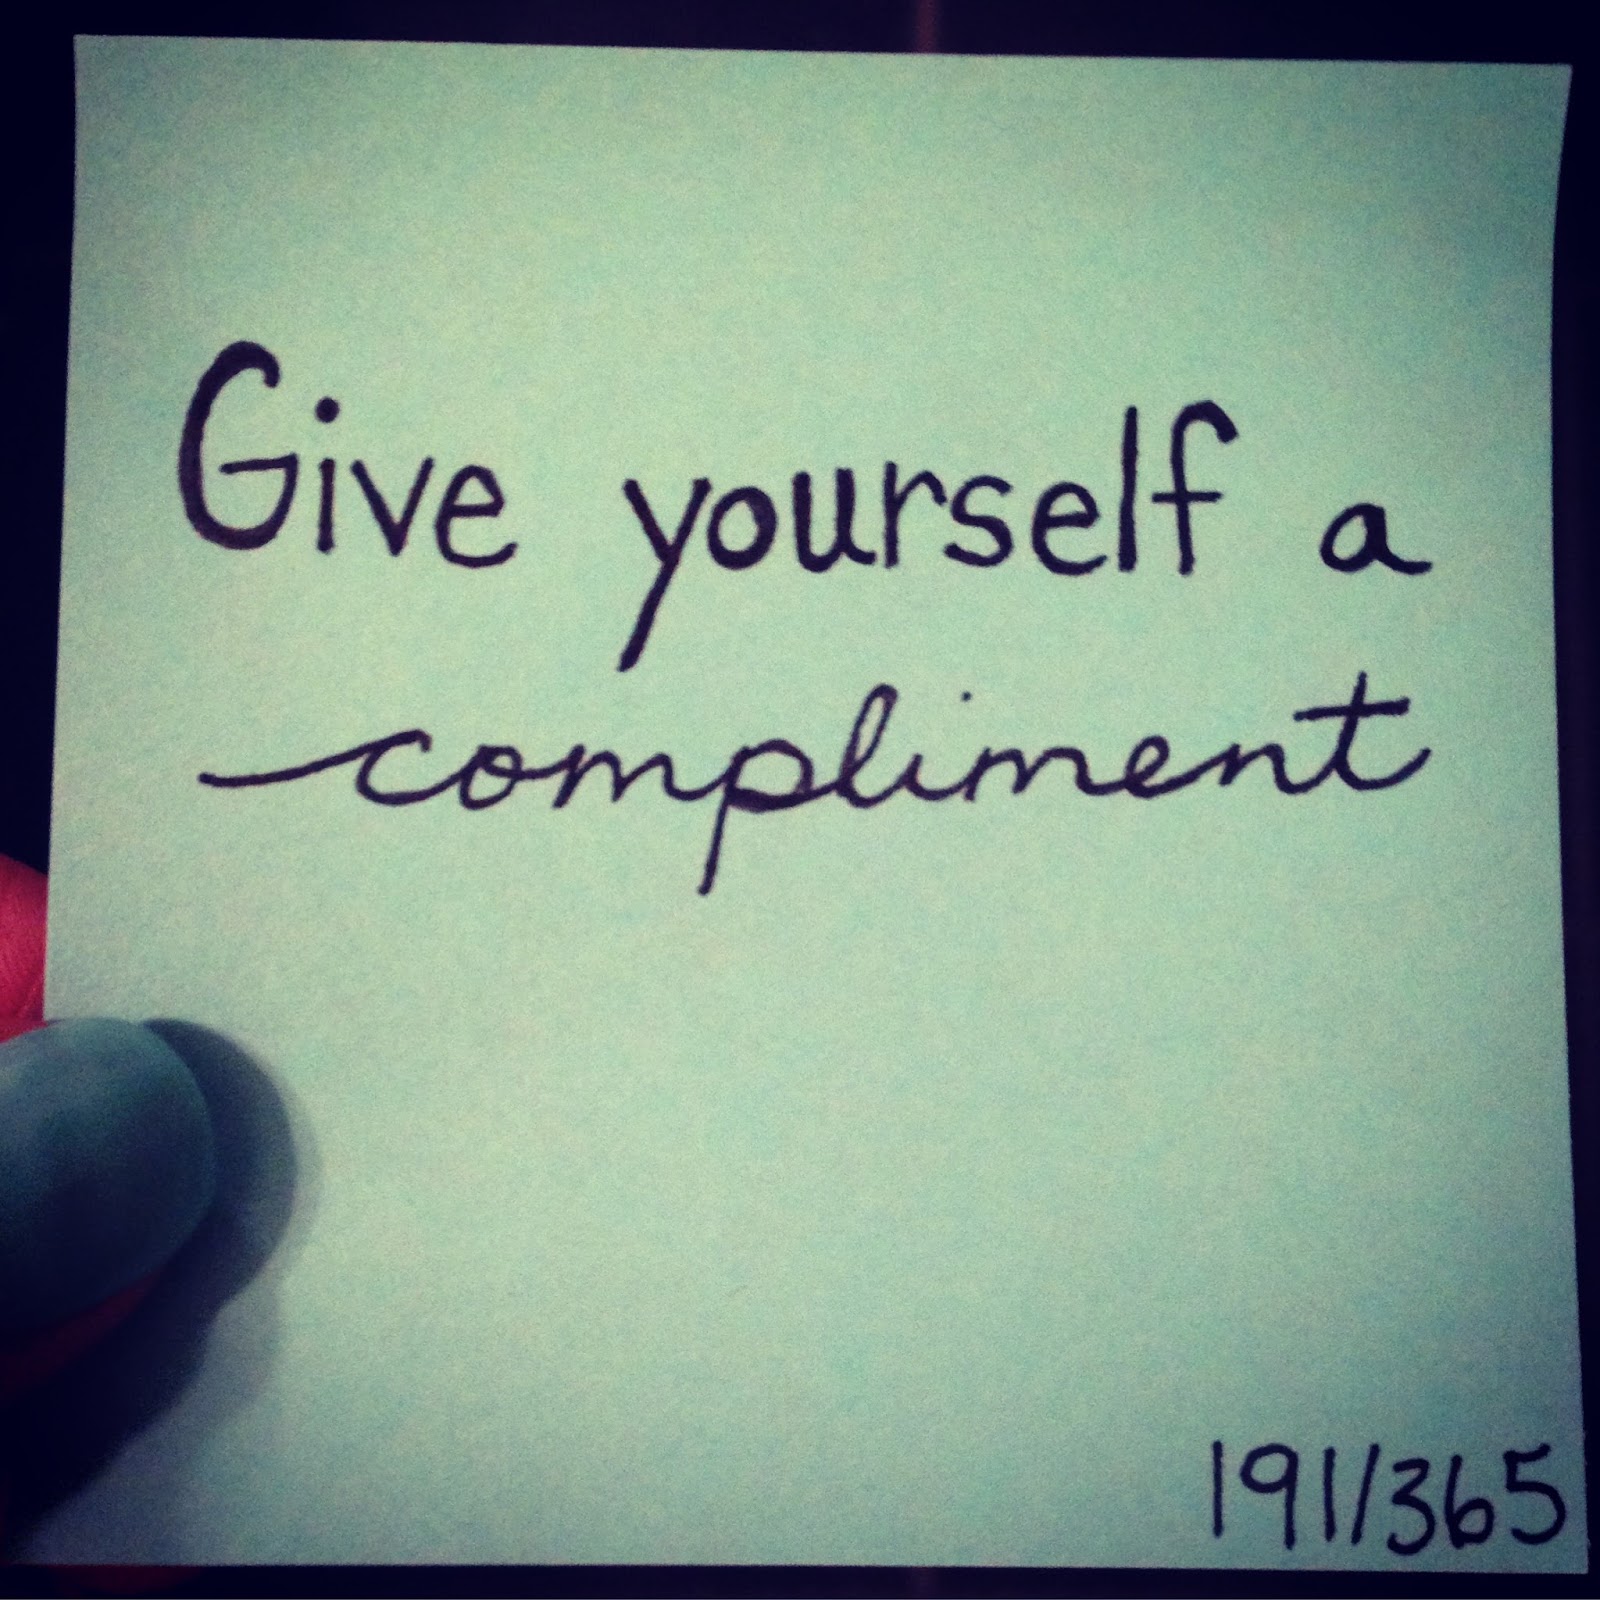 Give yourself a
compliment
191/365